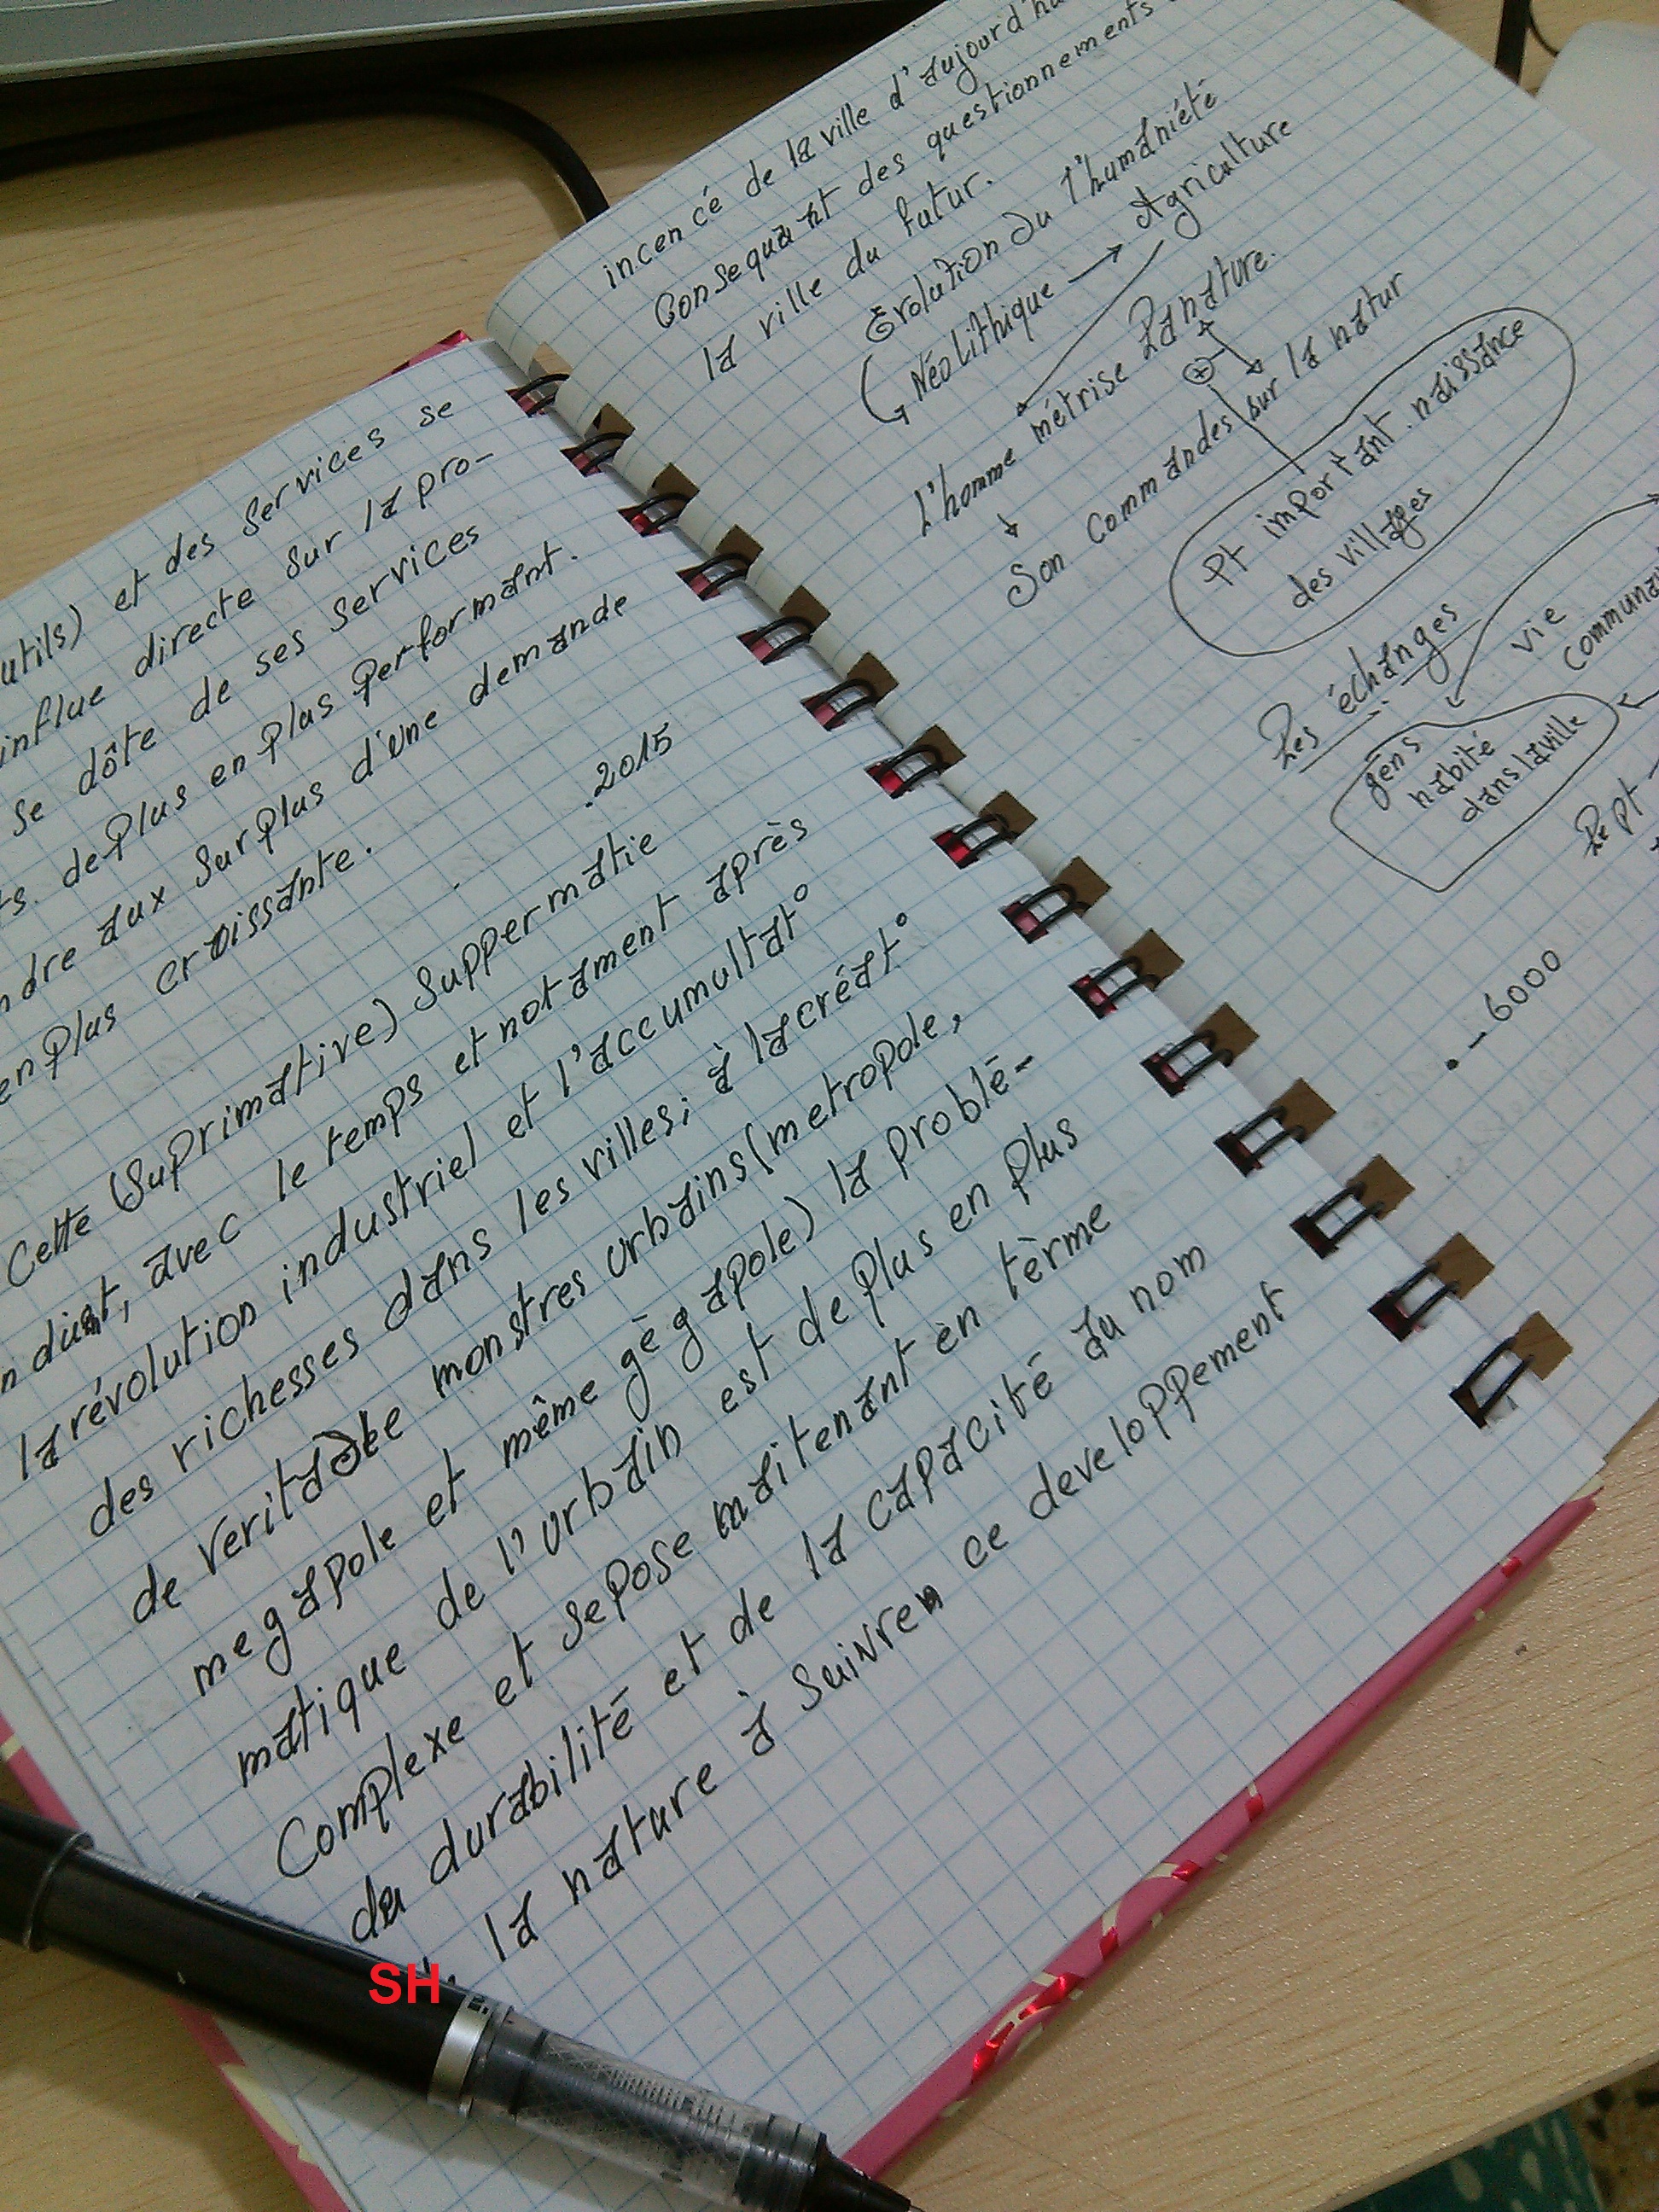 utils) et des services se
influe directe sur la pro-
se dôte de ses services
ts. de plus en plus performant.
ndre aux surplus d'une demande
en plus croissante.
.2015
Cette (Suprimative) Suppermatie
avec le temps et notament après
la révolution industriel et l'accumultat°
des richesses dans les villes; à la créat°
de veritable monstres urbains (metropole,
megapole et même gègapole) la problé-
matique de l'urbain est de plus en plus
Complexe et se pose maitenant en tèrme
du durabilité et de la capacité du nom
la nature à suivren ce developpement
SH
incencé de la ville d'aujourd'hu
Consequant des questionnements
la ville du futur.
Evolution du l'humaniété
Néolithique → Agriculture
L'homme métrise la nature.
Son commandes sur la natur
Pt important. naissance
des villages
Les échanges
vie
communau
gens
habité
dans la ville
Le pt
. - 6000